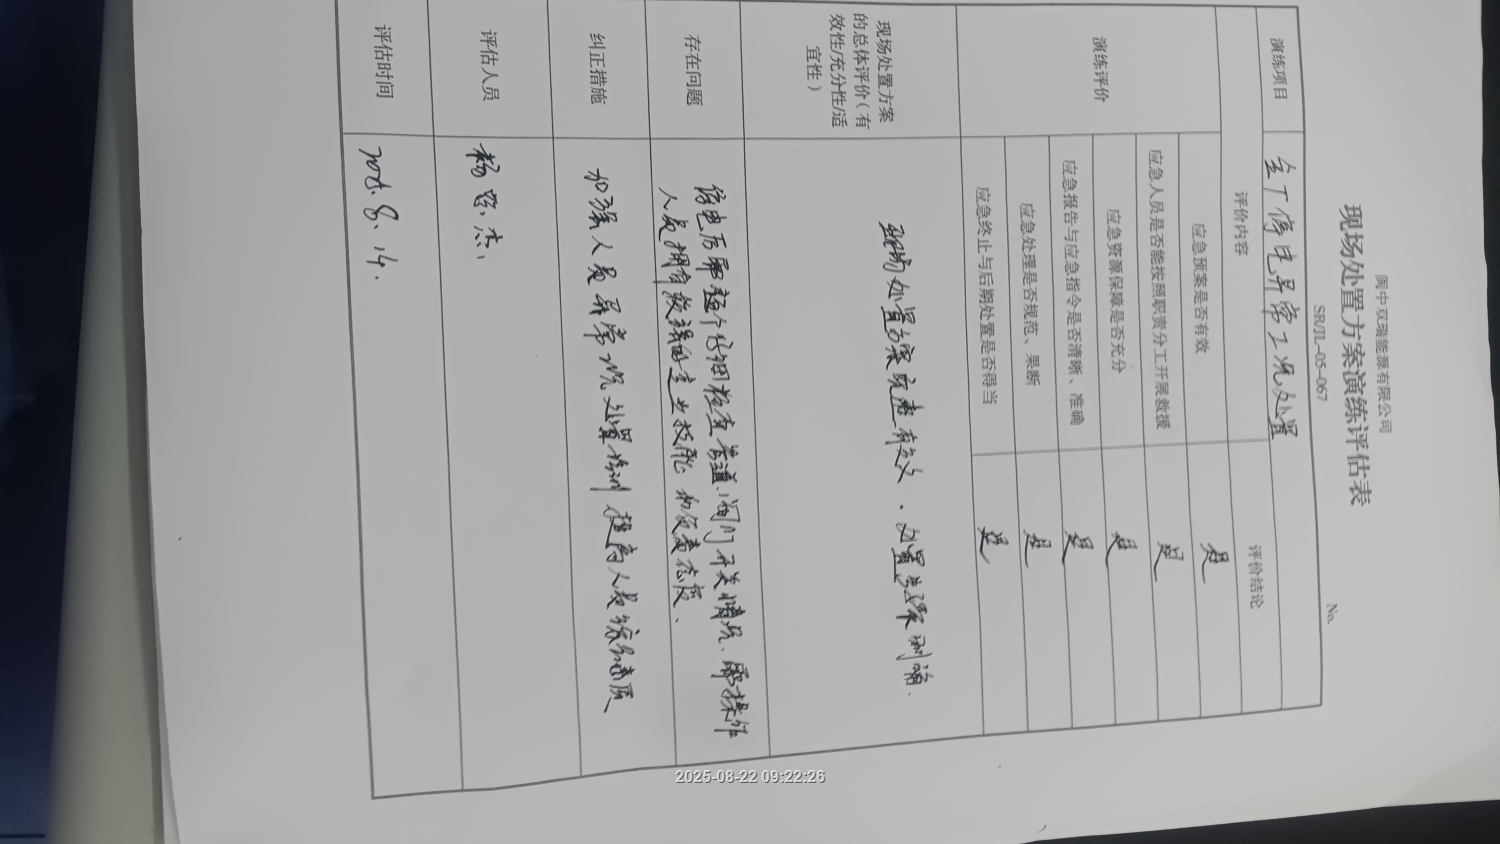 阆中双瑞能源有限公司
现场处置方案演练评估表
SR/JL-05-067
No.
演练项目 全厂停电异常工况处置
评价内容 评价结论
演练评价
应急预案是否有效 是
应急人员是否能按照职责分工开展救援 是
应急资源保障是否充分 是
应急报告与应急指令是否清晰、准确 是
应急处理是否规范、果断 是
应急终止与后期处置是否得当 是
现场处置方案
的总体评价（有
效性/充分性/适
宜性）
现场处置方案完善有效.处置步骤明确.
存在问题
停电后需逐个仔细检查管道、阀门开关情况.需操作
人员拥有较强的专业技能和反应.
纠正措施
加强人员异常工况处置培训 提高人员综合素质
评估人员
杨 杰
评估时间
8.14.
2025-08-22 09:22:26